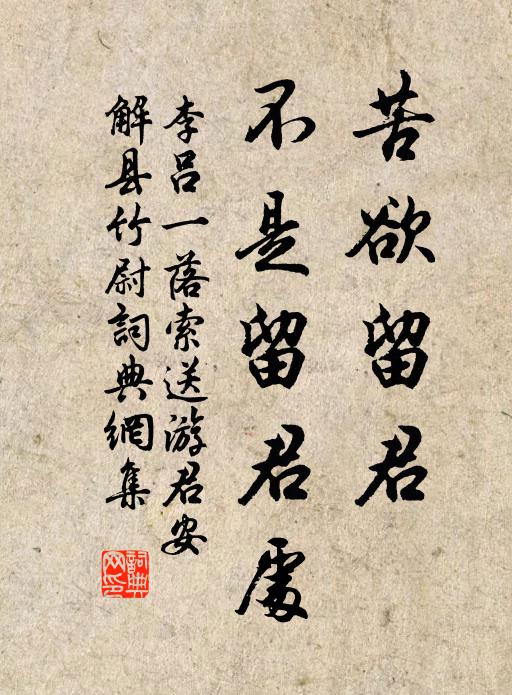 苦欲留君
不是留君處
李呂一落索送游君安
解县竹尉詞典網集
詞典
网印